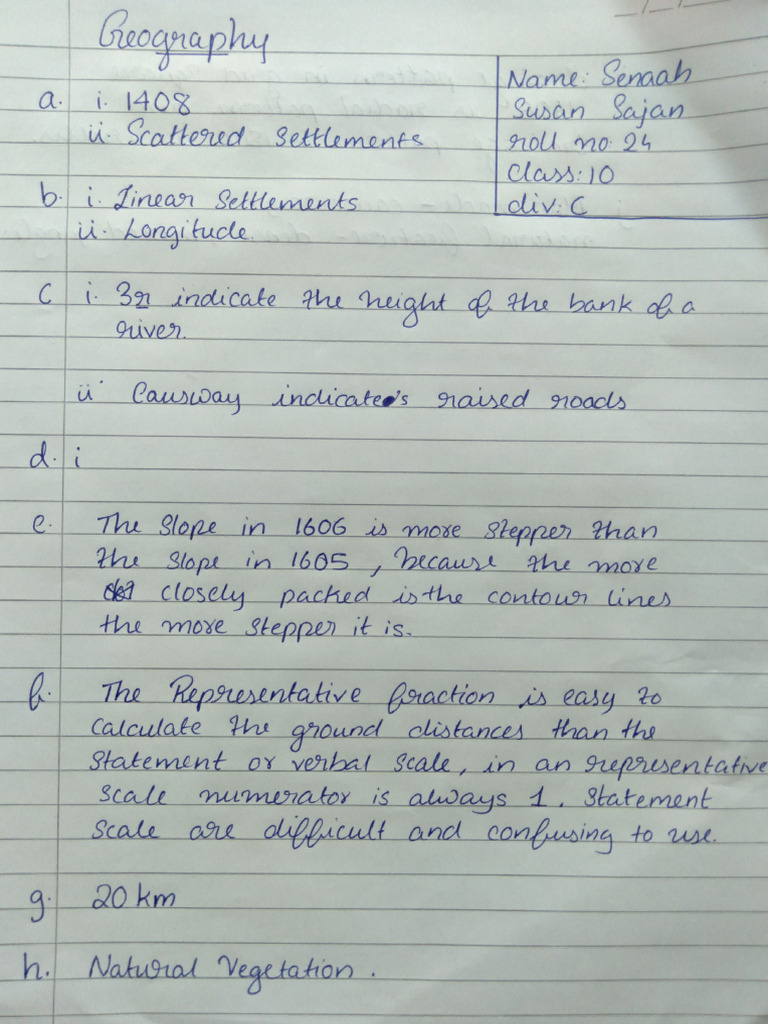 Geography
Name: Senaah
Susan Sajan
roll no: 24
Class: 10
div: C
a. i. 1408
ii. Scattered Settlements
b. i. Linear Settlements
ii. Longitude.
c i. 3r indicate the height of the bank of a
river.
ii Causway indicates raised roads
d. i
e. The slope in 1606 is more stepper than
the slope in 1605, because the more
closely packed is the contour lines
the more stepper it is.
f. The Representative fraction is easy to
calculate the ground distances than the
statement or verbal scale, in an representative
scale numerator is always 1. Statement
scale are difficult and confusing to use.
g. 20 km
h. Natural Vegetation.